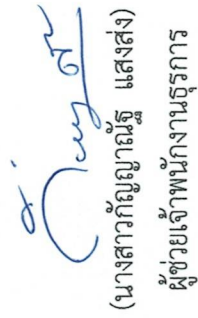 (นางสาวกัญญาณัฐ แสงส่ง)
ผู้ช่วยเจ้าพนักงานธุรการ